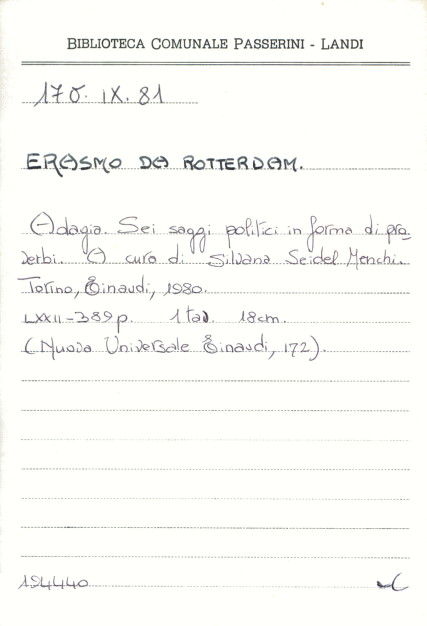 BIBLIOTECA COMUNALE PASSERINI - LANDI
170. IX. 81
ERASMO DA ROTTERDAM.
Adagia. Sei saggi politici in forma di pro-
verbi. A cura di Silvana Seidel Menchi.
Torino, Einaudi, 1980.
LXXII-389 p. 1 tav. 18 cm.
(Nuova Universale Einaudi, 172).
194440